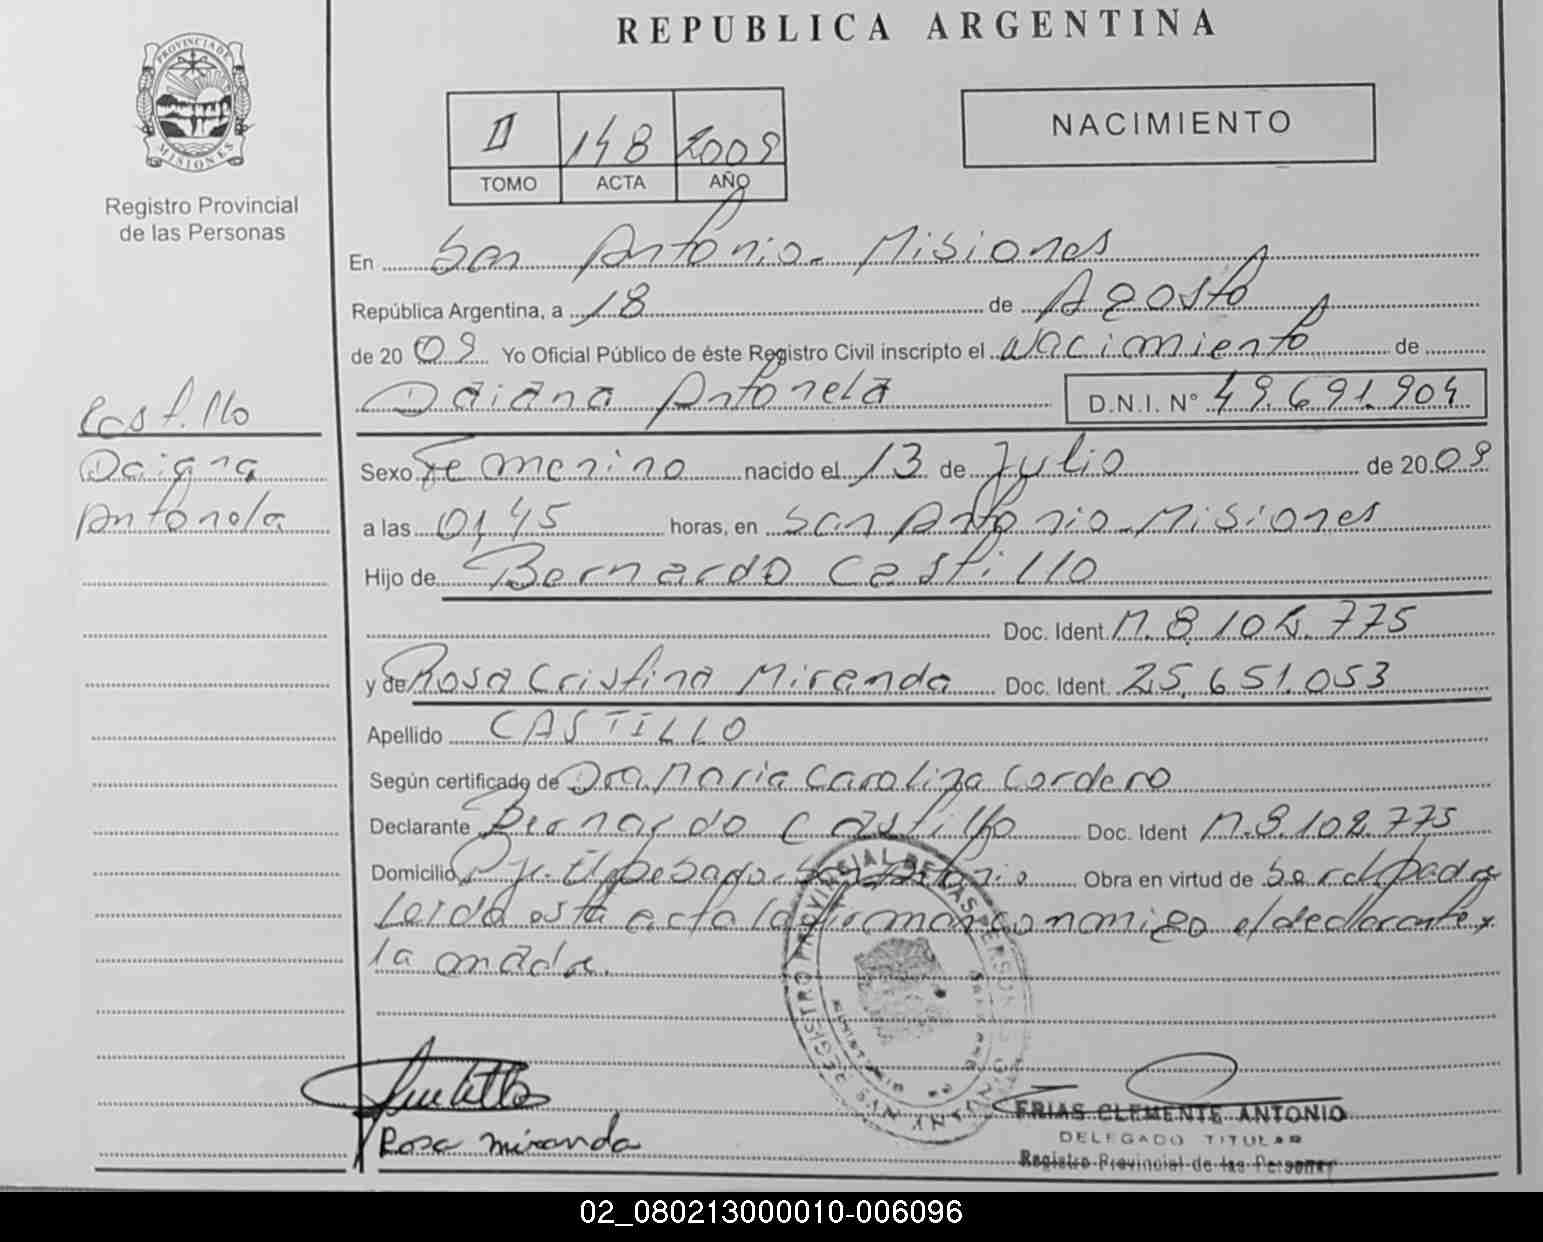 REPUBLICA ARGENTINA
PROVINCIA DE
MISIONES
Registro Provincial
de las Personas
II 148 2009
TOMO ACTA AÑO
NACIMIENTO
En San Antonio - Misiones
República Argentina, a 18 de Agosto
de 20 09 Yo Oficial Público de éste Registro Civil inscripto el Nacimiento de
Daiana Antonela D.N.I. N° 49.691.904
Castillo
Daiana
Antonela
Sexo Femenino nacido el 13 de Julio de 20 09
a las 01,45 horas, en San Antonio - Misiones
Hijo de Bernardo Castillo
Doc. Ident M. 8.108.775
y de Rosa Cristina Miranda Doc. Ident. 25.651.053
Apellido CASTILLO
Según certificado de Dra. Maria Carolina Cordero
Declarante Bernardo Castillo Doc. Ident M.8.108.775
Domicilio San Antonio Obra en virtud de
Leida esta acta la firman conmigo el declarante y
la madre.
REGISTRO PROVINCIAL DE LAS PERSONAS
Rosa miranda
FRIAS CLEMENTE ANTONIO
DELEGADO TITULAR
Registro Provincial de las Personas
02_080213000010-006096